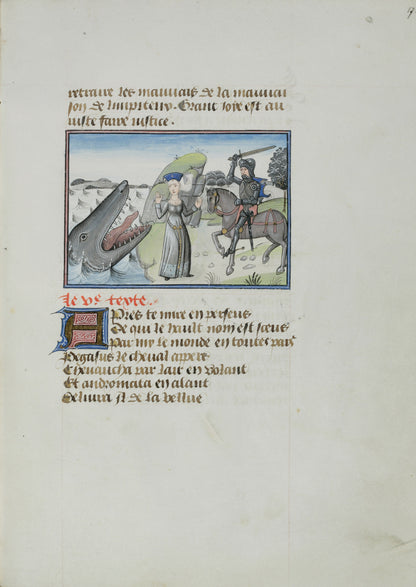 retraire les mauvais de la mauvai
son de lniquiteur. Grant joie est au
iuste faire iustice.
Le ve texte.
Apres te mire en perseus
De qui le hault nom est sceus
Par my le monde en toutes pars
Pegasus le cheval appere
Chevaucha par lair en volant
Et andromata en alant
Delivra Il de la bellue